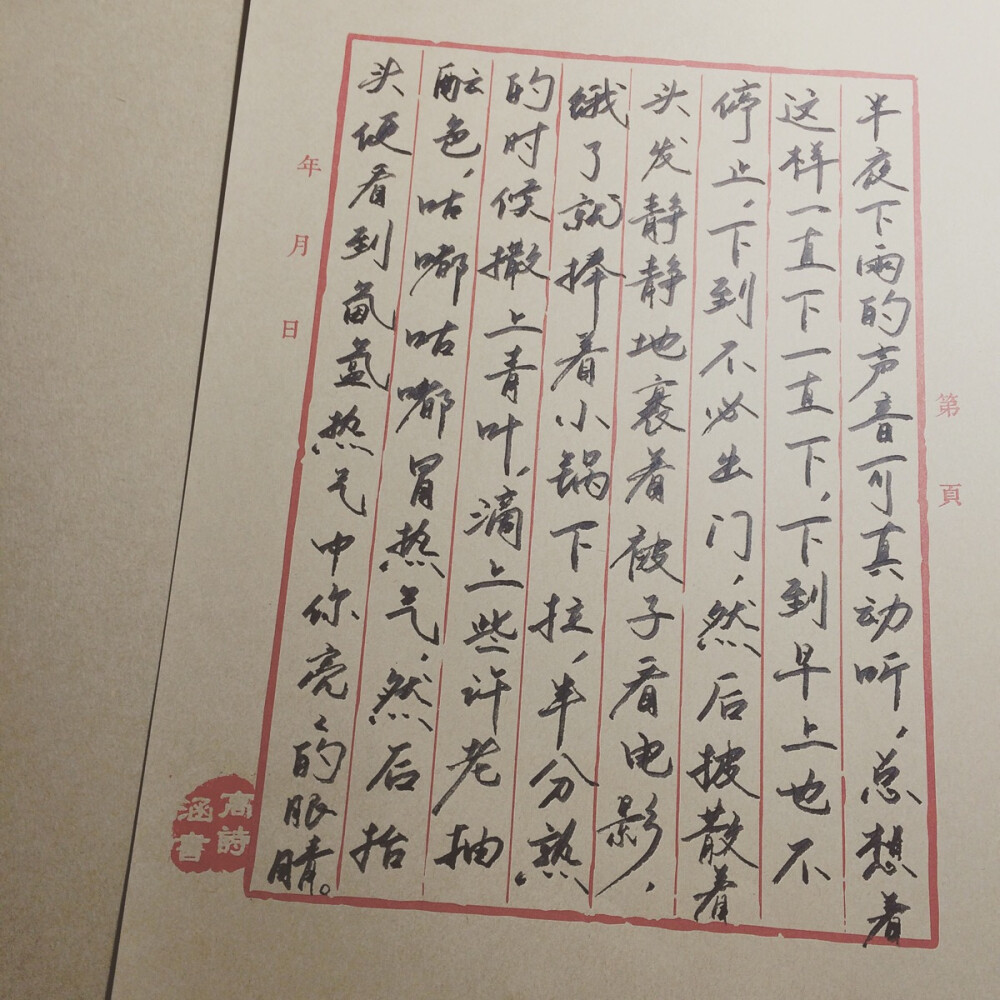 第頁
半夜下雨的声音可真动听，总想着
这样一直下一直下，下到早上也不
停止，下到不必出门，然后披散着
头发静静地裹着被子看电影，
饿了就捧着小锅下拉，半分熟
的时候撒上青叶，滴上些许老抽
酝色，咕嘟咕嘟冒热气，然后抬
头便看到氤氲热气中你亮々的眼睛。
年月日
高詩
涵書